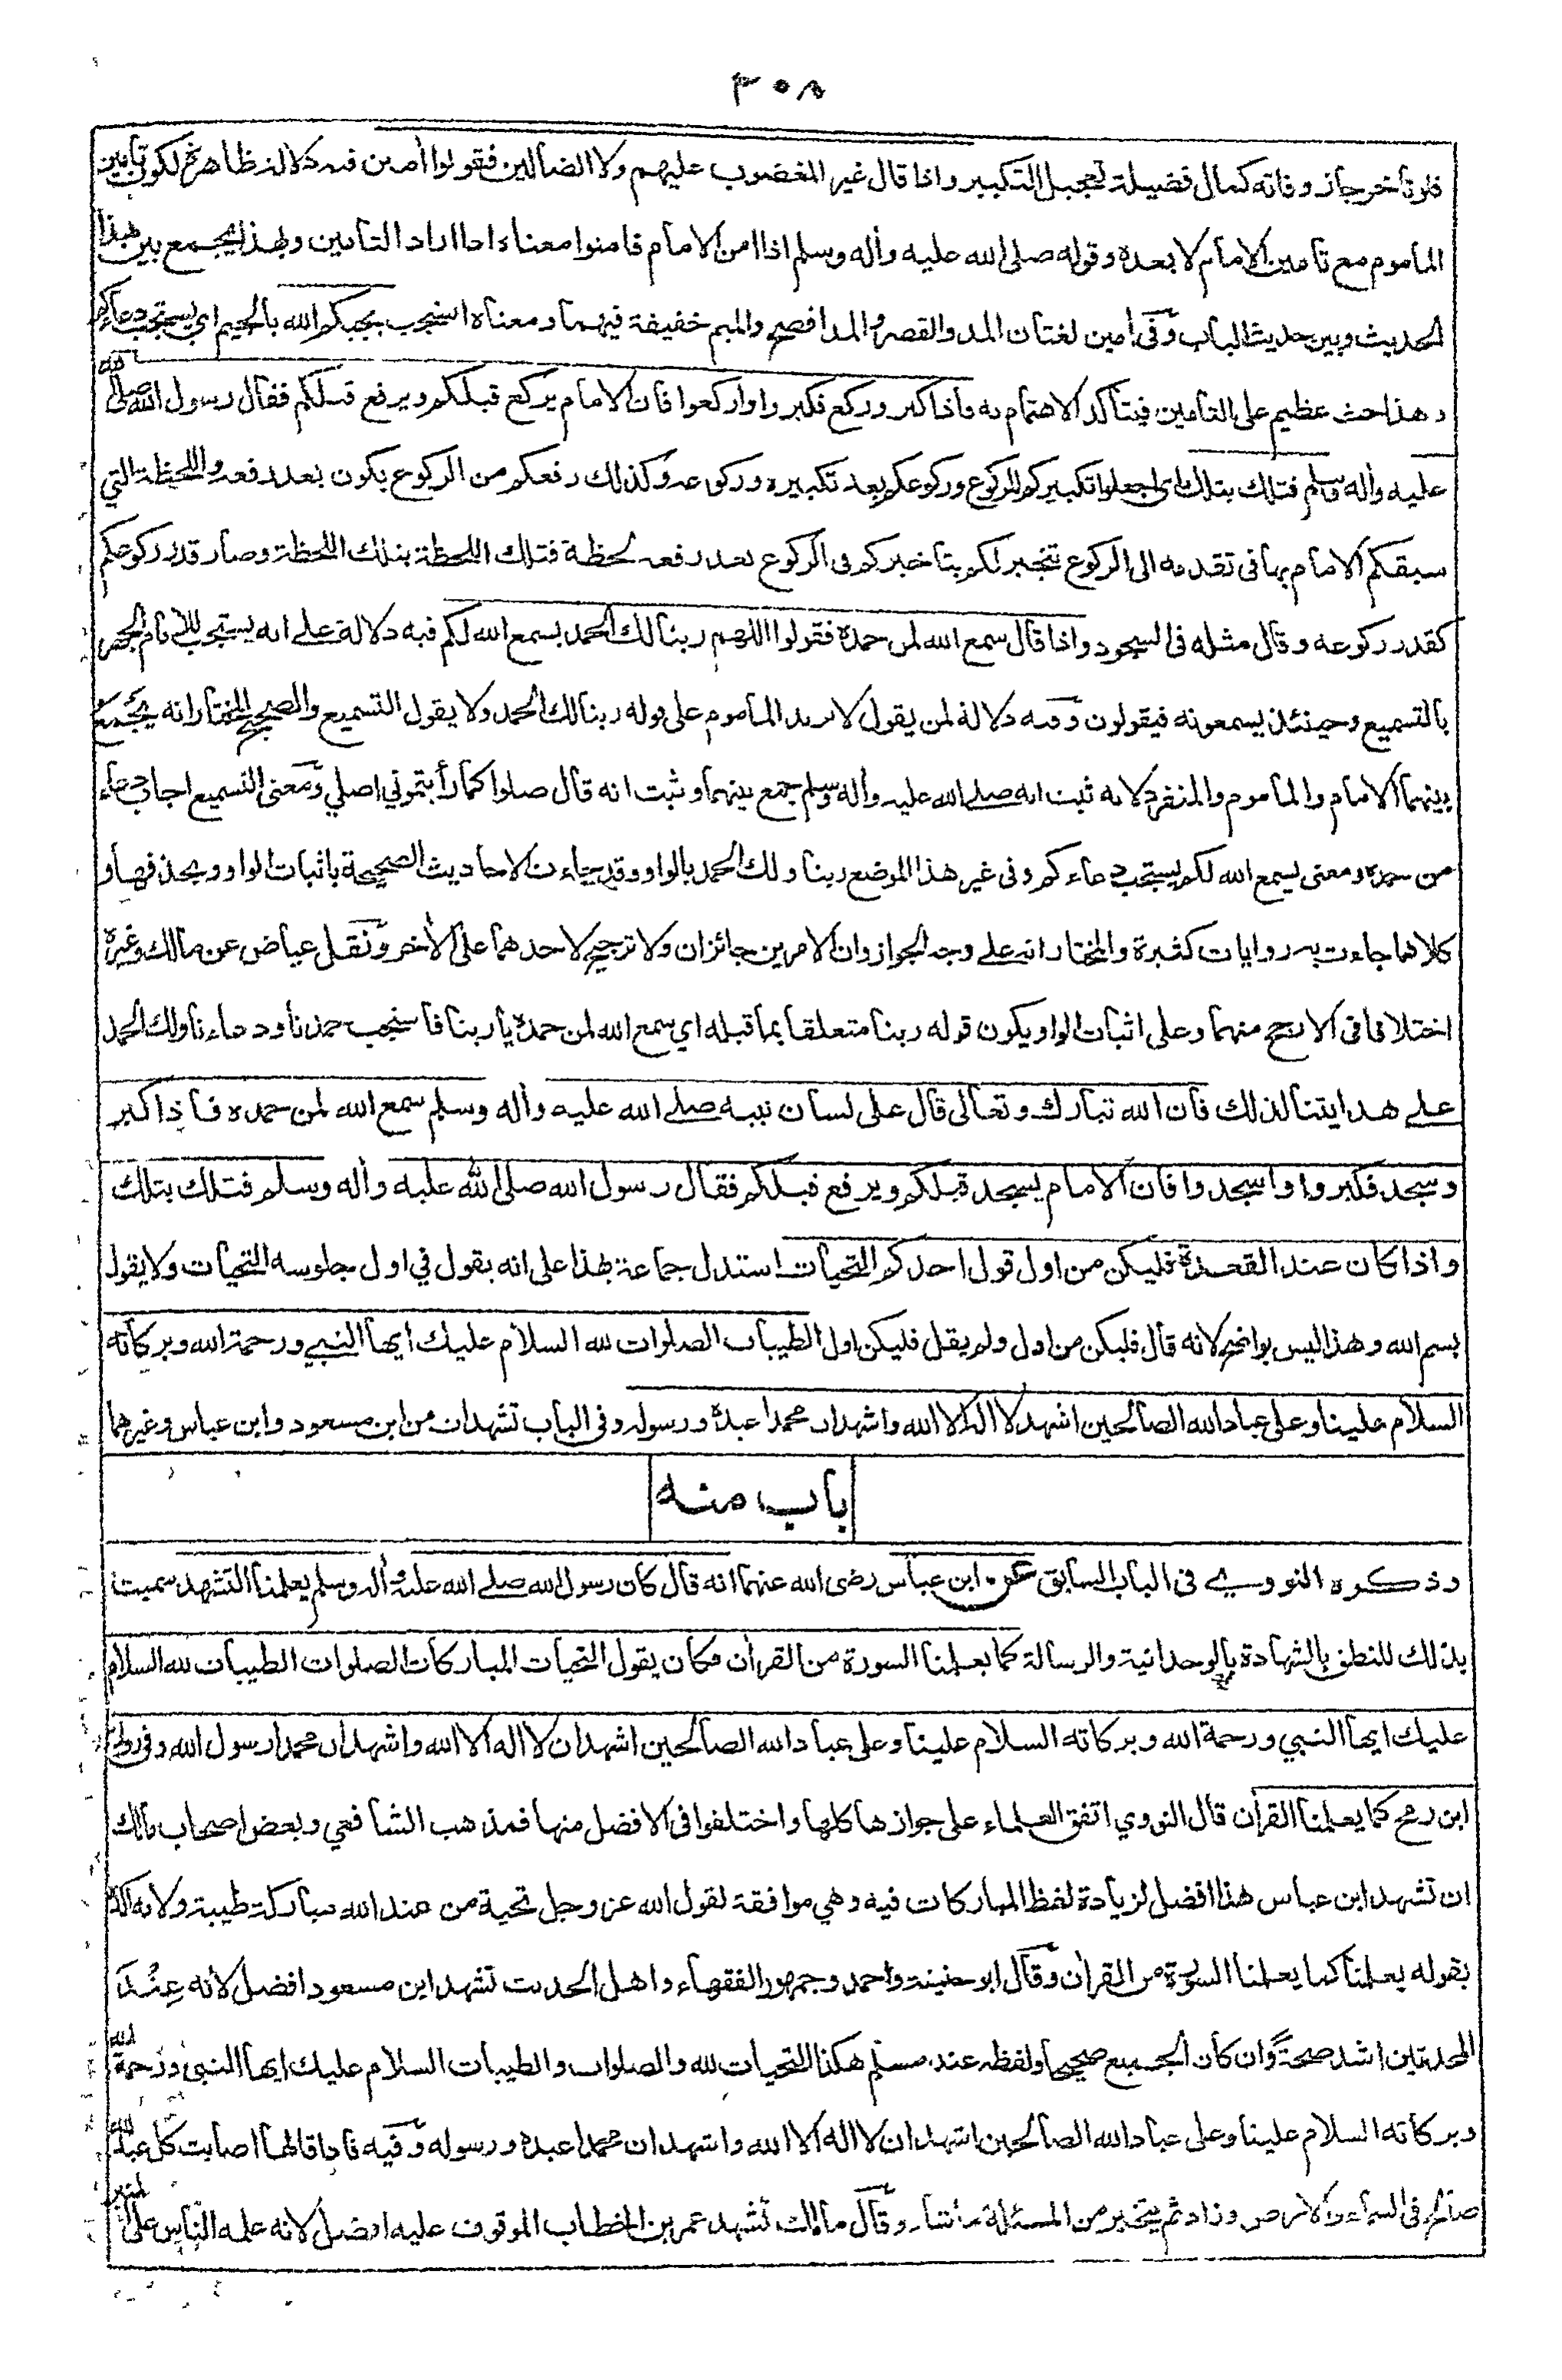 ٣٠٨
فلو تأخر جاز وفاته كمال فضيلة تعجيل التكبير واذا قال غير المغضوب عليهم ولا الضالين فقولوا أمين فيه دلالة ظاهرة لكون تأمين
المأموم مع تأمين الامام لا بعده وقوله صلى الله عليه وأله وسلم اذا امن الامام فامنوا معناه اذا اراد التأمين وبهذا يجمع بين هذا
الحديث وبين حديث الباب وفى أمين لغتان المد والقصر والمد افصح والميم خفيفة فيهما ومعناه استجب يجبكم الله بالجيم اي يستجب دعاءكم
وهذا حث عظيم على التأمين فيتأكد الاهتمام به فأذا كبر وركع فكبروا واركعوا فان الامام يركع قبلكم ويرفع قبلكم فقال رسول الله صلى الله
عليه وأله وسلم فتلك بتلك اى اجعلوا تكبيركم للركوع وركوعكم بعد تكبيره وركوعه وكذلك رفعكم من الركوع يكون بعد رفعه واللحظة التي
سبقكم الامام بها فى تقدمه الى الركوع تنجبر لكم بتأخيركم فى الركوع بعد رفعه لحظة فتلك اللحظة بتلك اللحظة وصار قدر ركوعكم
كقدر ركوعه وقال مثله فى السجود واذا قال سمع الله لمن حمده فقولوا اللهم ربنا لك الحمد يسمع الله لكم فيه دلالة على انه يستحب للامام الجهر
بالتسميع وحينئذ يسمعونه فيقولون وفيه دلالة لمن يقول لا يزيد المأموم على قوله ربنا لك الحمد ولا يقول التسميع والصحيح المختار انه يجمع
بينهما الامام والمأموم والمنفرد لانه ثبت انه صلى الله عليه وأله وسلم جمع بينهما وثبت انه قال صلوا كما رأيتموني اصلي ومعنى التسميع اجاب دعاء
من حمده ومعنى يسمع الله لكم يستجب دعاءكم وفى غير هذا الموضع ربنا ولك الحمد بالواو وقد جاءت الاحاديث الصحيحة باثبات الواو وبحذفها و
كلاهما جاءت به روايات كثيرة والمختار انه على وجه الجواز وان الامرين جائزان ولا ترجيح لاحدهما على الأخر ونقل عياض عن مالك وغيره
اختلافا فى الارجح منهما وعلى اثبات الواو يكون قوله ربنا متعلقا بما قبله اي سمع الله لمن حمده يا ربنا فأستجب حمدنا ودعاءنا ولك الحمد
على هدايتنا لذلك فان الله تبارك وتعالى قال على لسان نبيه صلى الله عليه وأله وسلم سمع الله لمن حمده فأذا كبر
وسجد فكبروا واسجدوا فان الامام يسجد قبلكم ويرفع قبلكم فقال رسول الله صلى الله عليه وأله وسلم فتلك بتلك
واذا كان عند القعدة فليكن من اول قول احدكم التحيات استدل جماعة بهذا على انه يقول في اول جلوسه التحيات ولا يقول
بسم الله وهذا ليس بواضح لانه قال فليكن من اول ولم يقل فليكن اول الطيبات الصلوات لله السلام عليك ايها النبي ورحمة الله وبركاته
السلام علينا وعلى عباد الله الصالحين اشهد لا اله الا الله واشهد ان محمدا عبده ورسوله وفى الباب تشهدات من ابن مسعود وابن عباس وغيرهما
باب منه
وذكره النووي فى الباب السابق عن ابن عباس رضى الله عنهما انه قال كان رسول الله صلى الله عليه وأله وسلم يعلمنا التشهد سميت
بذلك للنطق بالشهادة بالوحدانية والرسالة كما يعلمنا السورة من القرأن فكان يقول التحيات المباركات الصلوات الطيبات لله السلام
عليك ايها النبي ورحمة الله وبركاته السلام علينا وعلى عباد الله الصالحين اشهد ان لا اله الا الله واشهد ان محمدا رسول الله وفى رواية
ابن رمح كما يعلمنا القرأن قال النووي اتفق العلماء على جوازها كلها واختلفوا فى الافضل منها فمذهب الشافعي وبعض اصحاب مالك
ان تشهد ابن عباس هذا افضل لزيادة لفظ المباركات فيه وهي موافقة لقول الله عز وجل تحية من عند الله مباركة طيبة ولانه اكده
بقوله يعلمنا كما يعلمنا السورة من القرأن وقال ابو حنيفة واحمد وجمهور الفقهاء واهل الحديث تشهد ابن مسعود افضل لانه عند
المحدثين اشد صحة وان كان الجميع صحيحا ولفظه عند مسلم هكذا التحيات لله والصلوات والطيبات السلام عليك ايها النبي ورحمة الله
وبركاته السلام علينا وعلى عباد الله الصالحين اشهد ان لا اله الا الله واشهد ان محمدا عبده ورسوله وفيه فأذا قالها اصابت كل عبد لله
صالح فى السماء والارض وزاد ثم يتخير من المسئلة ما شاء وقال مالك تشهد عمر بن الخطاب الموقوف عليه افضل لانه علمه الناس على المنبر